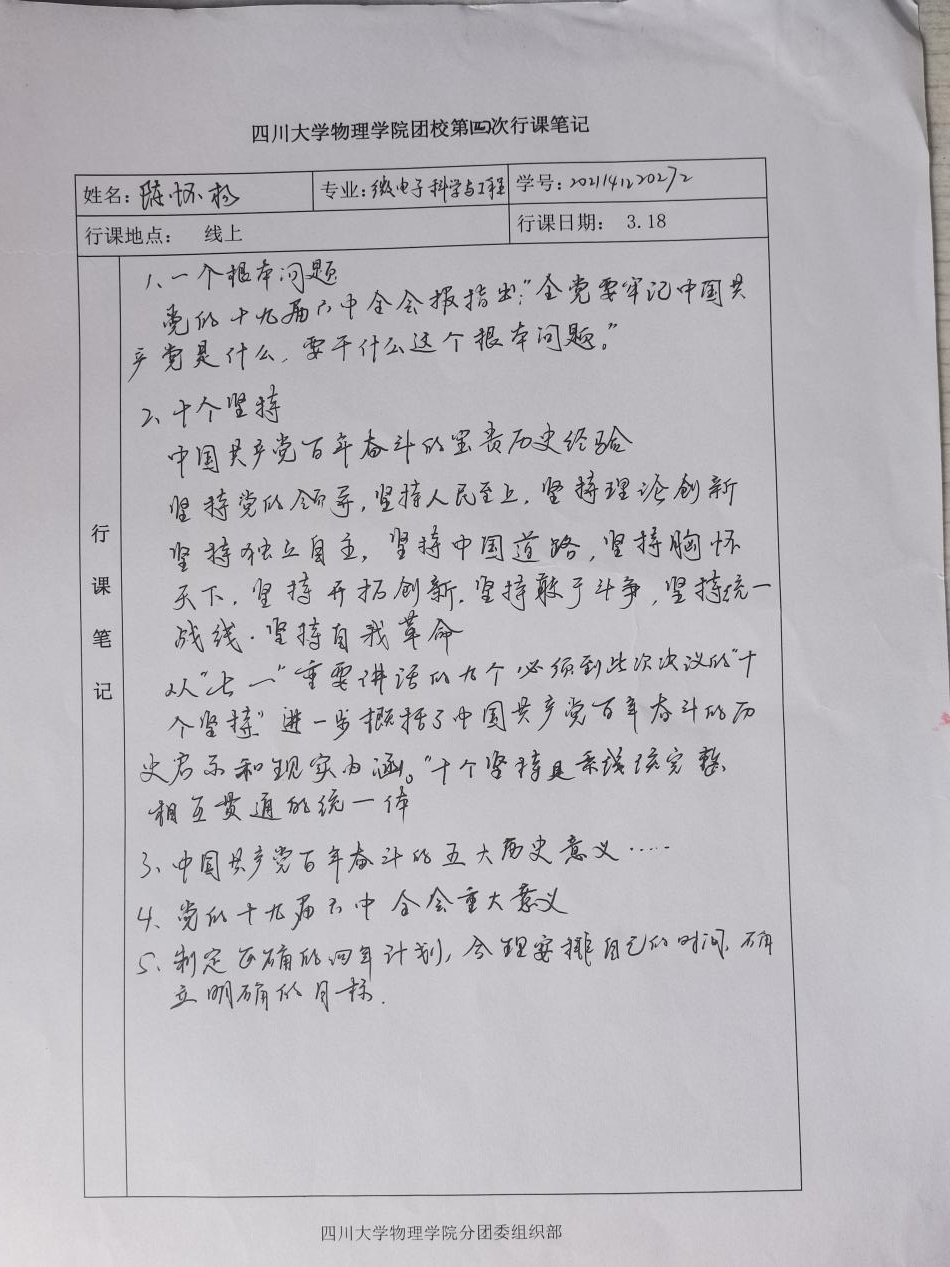 四川大学物理学院团校第四次行课笔记
姓名：陈怀杨 专业：微电子科学与工程 学号：2021141220272
行课地点： 线上 行课日期： 3.18
行课笔记
1、一个根本问题
党的十九届六中全会报指出：“全党要牢记中国共
产党是什么，要干什么这个根本问题。”
2、十个坚持
中国共产党百年奋斗的宝贵历史经验
坚持党的领导，坚持人民至上，坚持理论创新
坚持独立自主，坚持中国道路，坚持胸怀
天下，坚持开拓创新，坚持敢于斗争，坚持统一
战线，坚持自我革命
从“七一”重要讲话的九个必须到此次决议的“十
个坚持”进一步概括了中国共产党百年奋斗的历
史启示和现实内涵。“十个坚持是系统完整
相互贯通的统一体
3、中国共产党百年奋斗的五大历史意义……
4、党的十九届六中全会重大意义
5、制定正确的四年计划，合理安排自己的时间，确
立明确的目标.
四川大学物理学院分团委组织部